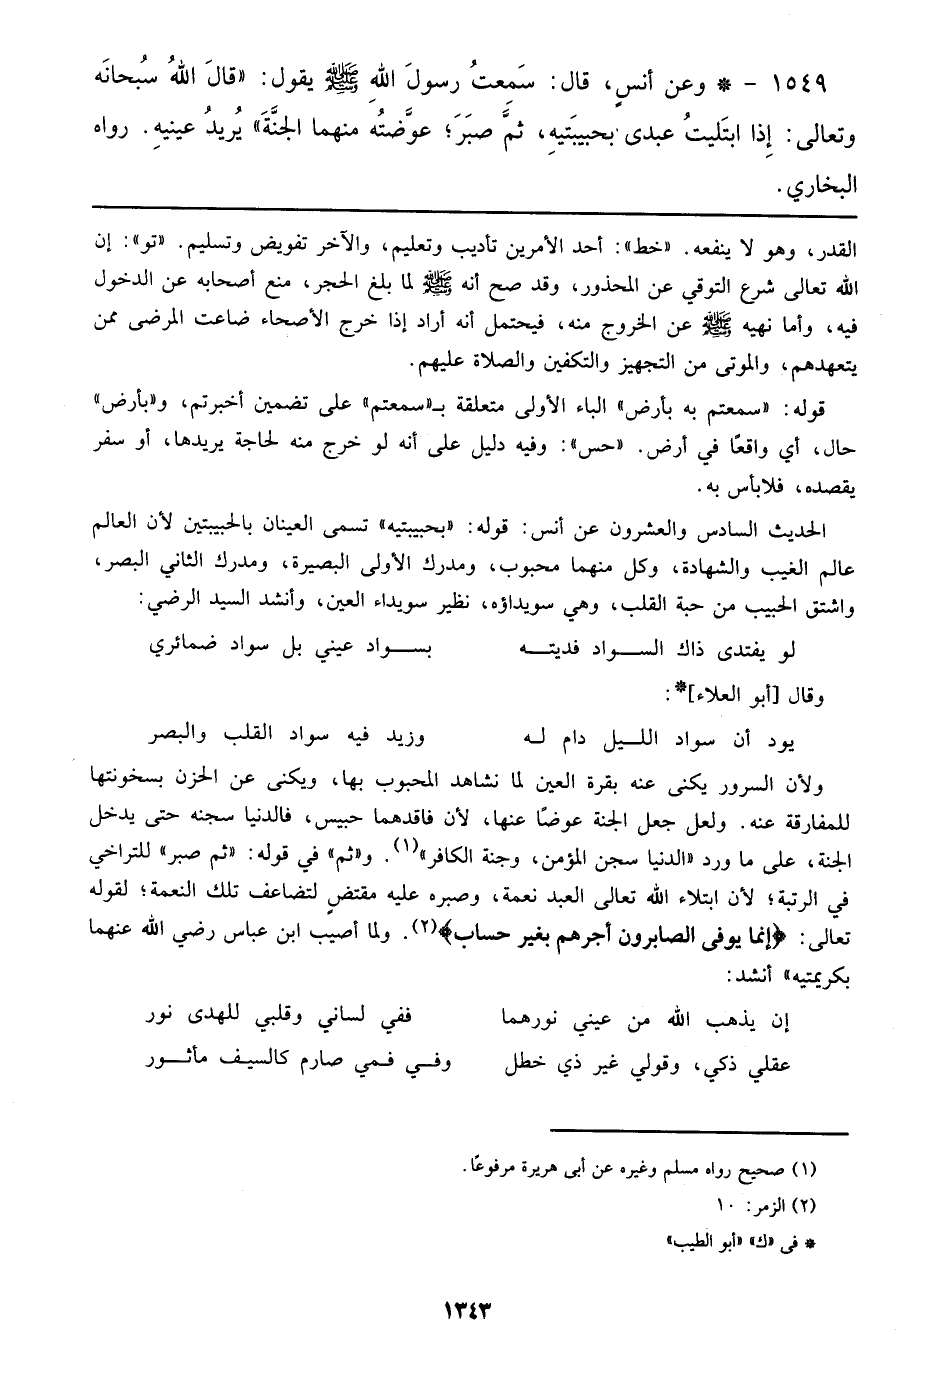 ١٥٤٩ - * وعن أنسٍ، قال: سَمِعتُ رسولَ اللهِ ﷺ يقول: «قالَ اللهُ سُبحانَه
وتعالى: إِذا ابتَليتُ عبدى بحبيبَتيهِ، ثمَّ صبَرَ؛ عوَّضتُه منهما الجنَّةَ» يُريدُ عينيهِ. رواه
البخاري.
القدر، وهو لا ينفعه. «خط»: أحد الأمرين تأديب وتعليم، والآخر تفويض وتسليم. «تو»: إن
الله تعالى شرع التوقي عن المحذور، وقد صح أنه ﷺ لما بلغ الحجر، منع أصحابه عن الدخول
فيه، وأما نهيه ﷺ عن الخروج منه، فيحتمل أنه أراد إذا خرج الأصحاء ضاعت المرضى ممن
يتعهدهم، والموتى من التجهيز والتكفين والصلاة عليهم.
قوله: «سمعتم به بأرض» الباء الأولى متعلقة بـ«سمعتم» على تضمين أخبرتم، و«بأرض»
حال، أي واقعًا في أرض. «حس»: وفيه دليل على أنه لو خرج منه لحاجة يريدها، أو سفر
يقصده، فلابأس به.
الحديث السادس والعشرون عن أنس: قوله: «بحبيبتيه» تسمى العينان بالحبيبتين لأن العالم
عالم الغيب والشهادة، وكل منهما محبوب، ومدرك الأولى البصيرة، ومدرك الثاني البصر،
واشتق الحبيب من حبة القلب، وهي سويداؤه، نظير سويداء العين، وأنشد السيد الرضي:
لو يفتدى ذاك الســـواد فديتـــه بســـواد عيني بل سواد ضمائري
وقال [أبو العلاء]*:
يود أن سواد الليـل دام لـه وزيد فيه سواد القلب والبصر
ولأن السرور يكنى عنه بقرة العين لما نشاهد المحبوب بها، ويكنى عن الحزن بسخونتها
للمفارقة عنه. ولعل جعل الجنة عوضًا عنها، لأن فاقدهما حبيس، فالدنيا سجنه حتى يدخل
الجنة، على ما ورد «الدنيا سجن المؤمن، وجنة الكافر»(١). و«ثم» في قوله: «ثم صبر» للتراخي
في الرتبة؛ لأن ابتلاء الله تعالى العبد نعمة، وصبره عليه مقتضٍ لتضاعف تلك النعمة؛ لقوله
تعالى: ﴿إنما يوفى الصابرون أجرهم بغير حساب﴾(٢). ولما أصيب ابن عباس رضي الله عنهما
بكريمتيه» أنشد:
إن يذهب الله من عيني نورهما ففي لساني وقلبي للهدى نور
عقلي ذكي، وقولي غير ذي خطل وفـي فـمي صارم كالسيف مأثـــور
(١) صحيح رواه مسلم وغيره عن أبى هريرة مرفوعًا.
(٢) الزمر: ١٠
* فى «ك» «أبو الطيب»
١٣٤٣